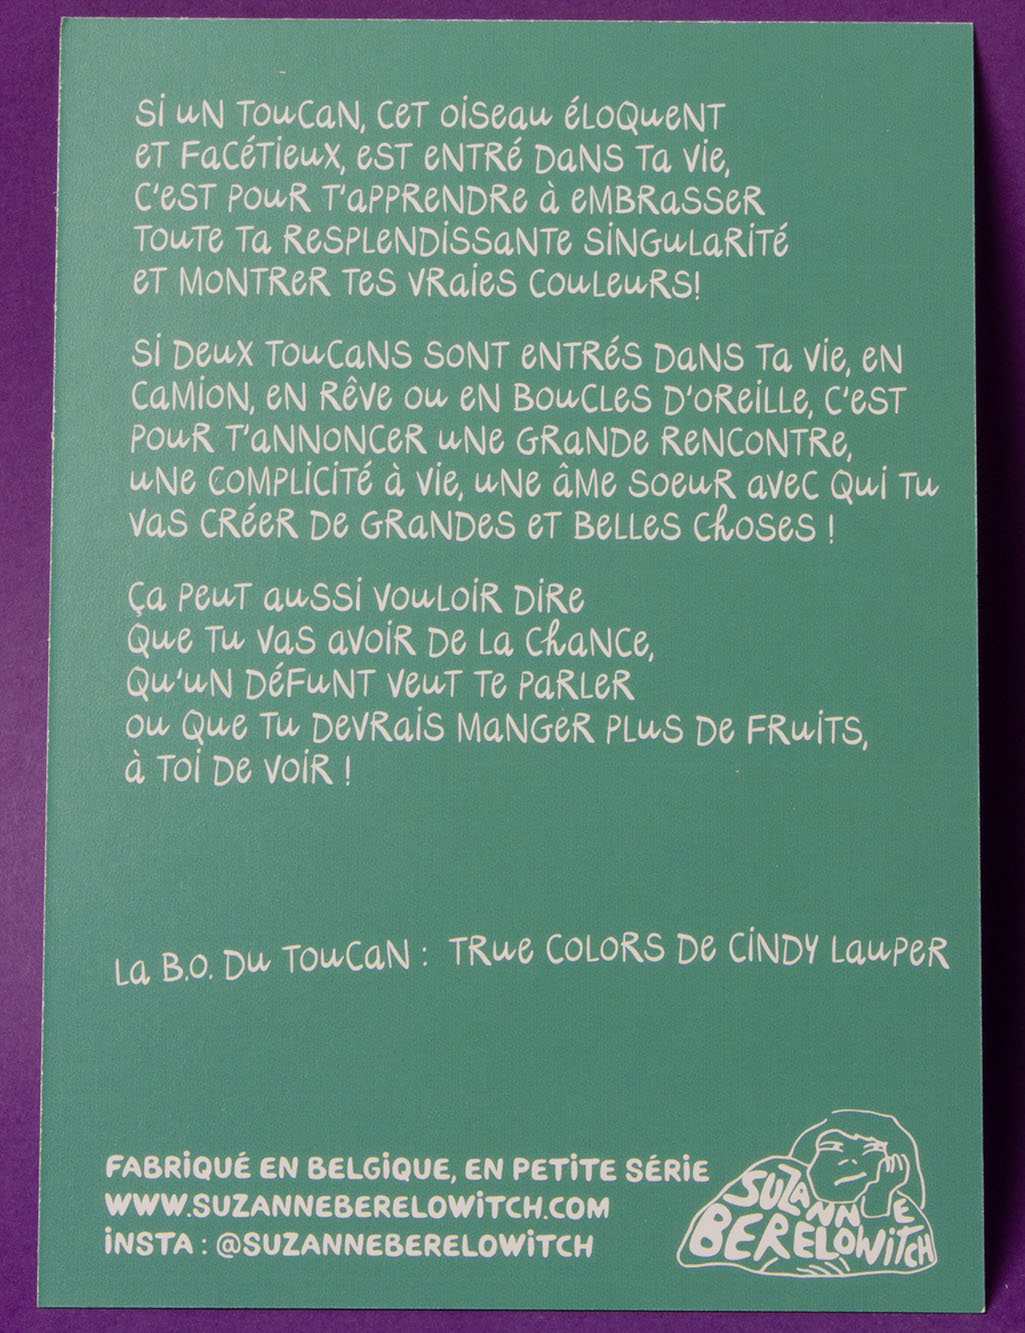 Si un toucan, cet oiseau éloquent
et facétieux, est entré dans ta vie,
c'est pour t'apprendre à embrasser
toute ta resplendissante singularité
et montrer tes vraies couleurs!
Si deux toucans sont entrés dans ta vie, en
camion, en rêve ou en boucles d'oreille, c'est
pour t'annoncer une grande rencontre,
une complicité à vie, une âme soeur avec qui tu
vas créer de grandes et belles choses !
Ça peut aussi vouloir dire
que tu vas avoir de la chance,
qu'un défunt veut te parler
ou que tu devrais manger plus de fruits,
à toi de voir !
La B.O. du toucan : True Colors de Cindy Lauper
FABRIQUÉ EN BELGIQUE, EN PETITE SÉRIE
WWW.SUZANNEBERELOWITCH.COM
INSTA : @SUZANNEBERELOWITCH
SUZANNE
BERELOWITCH